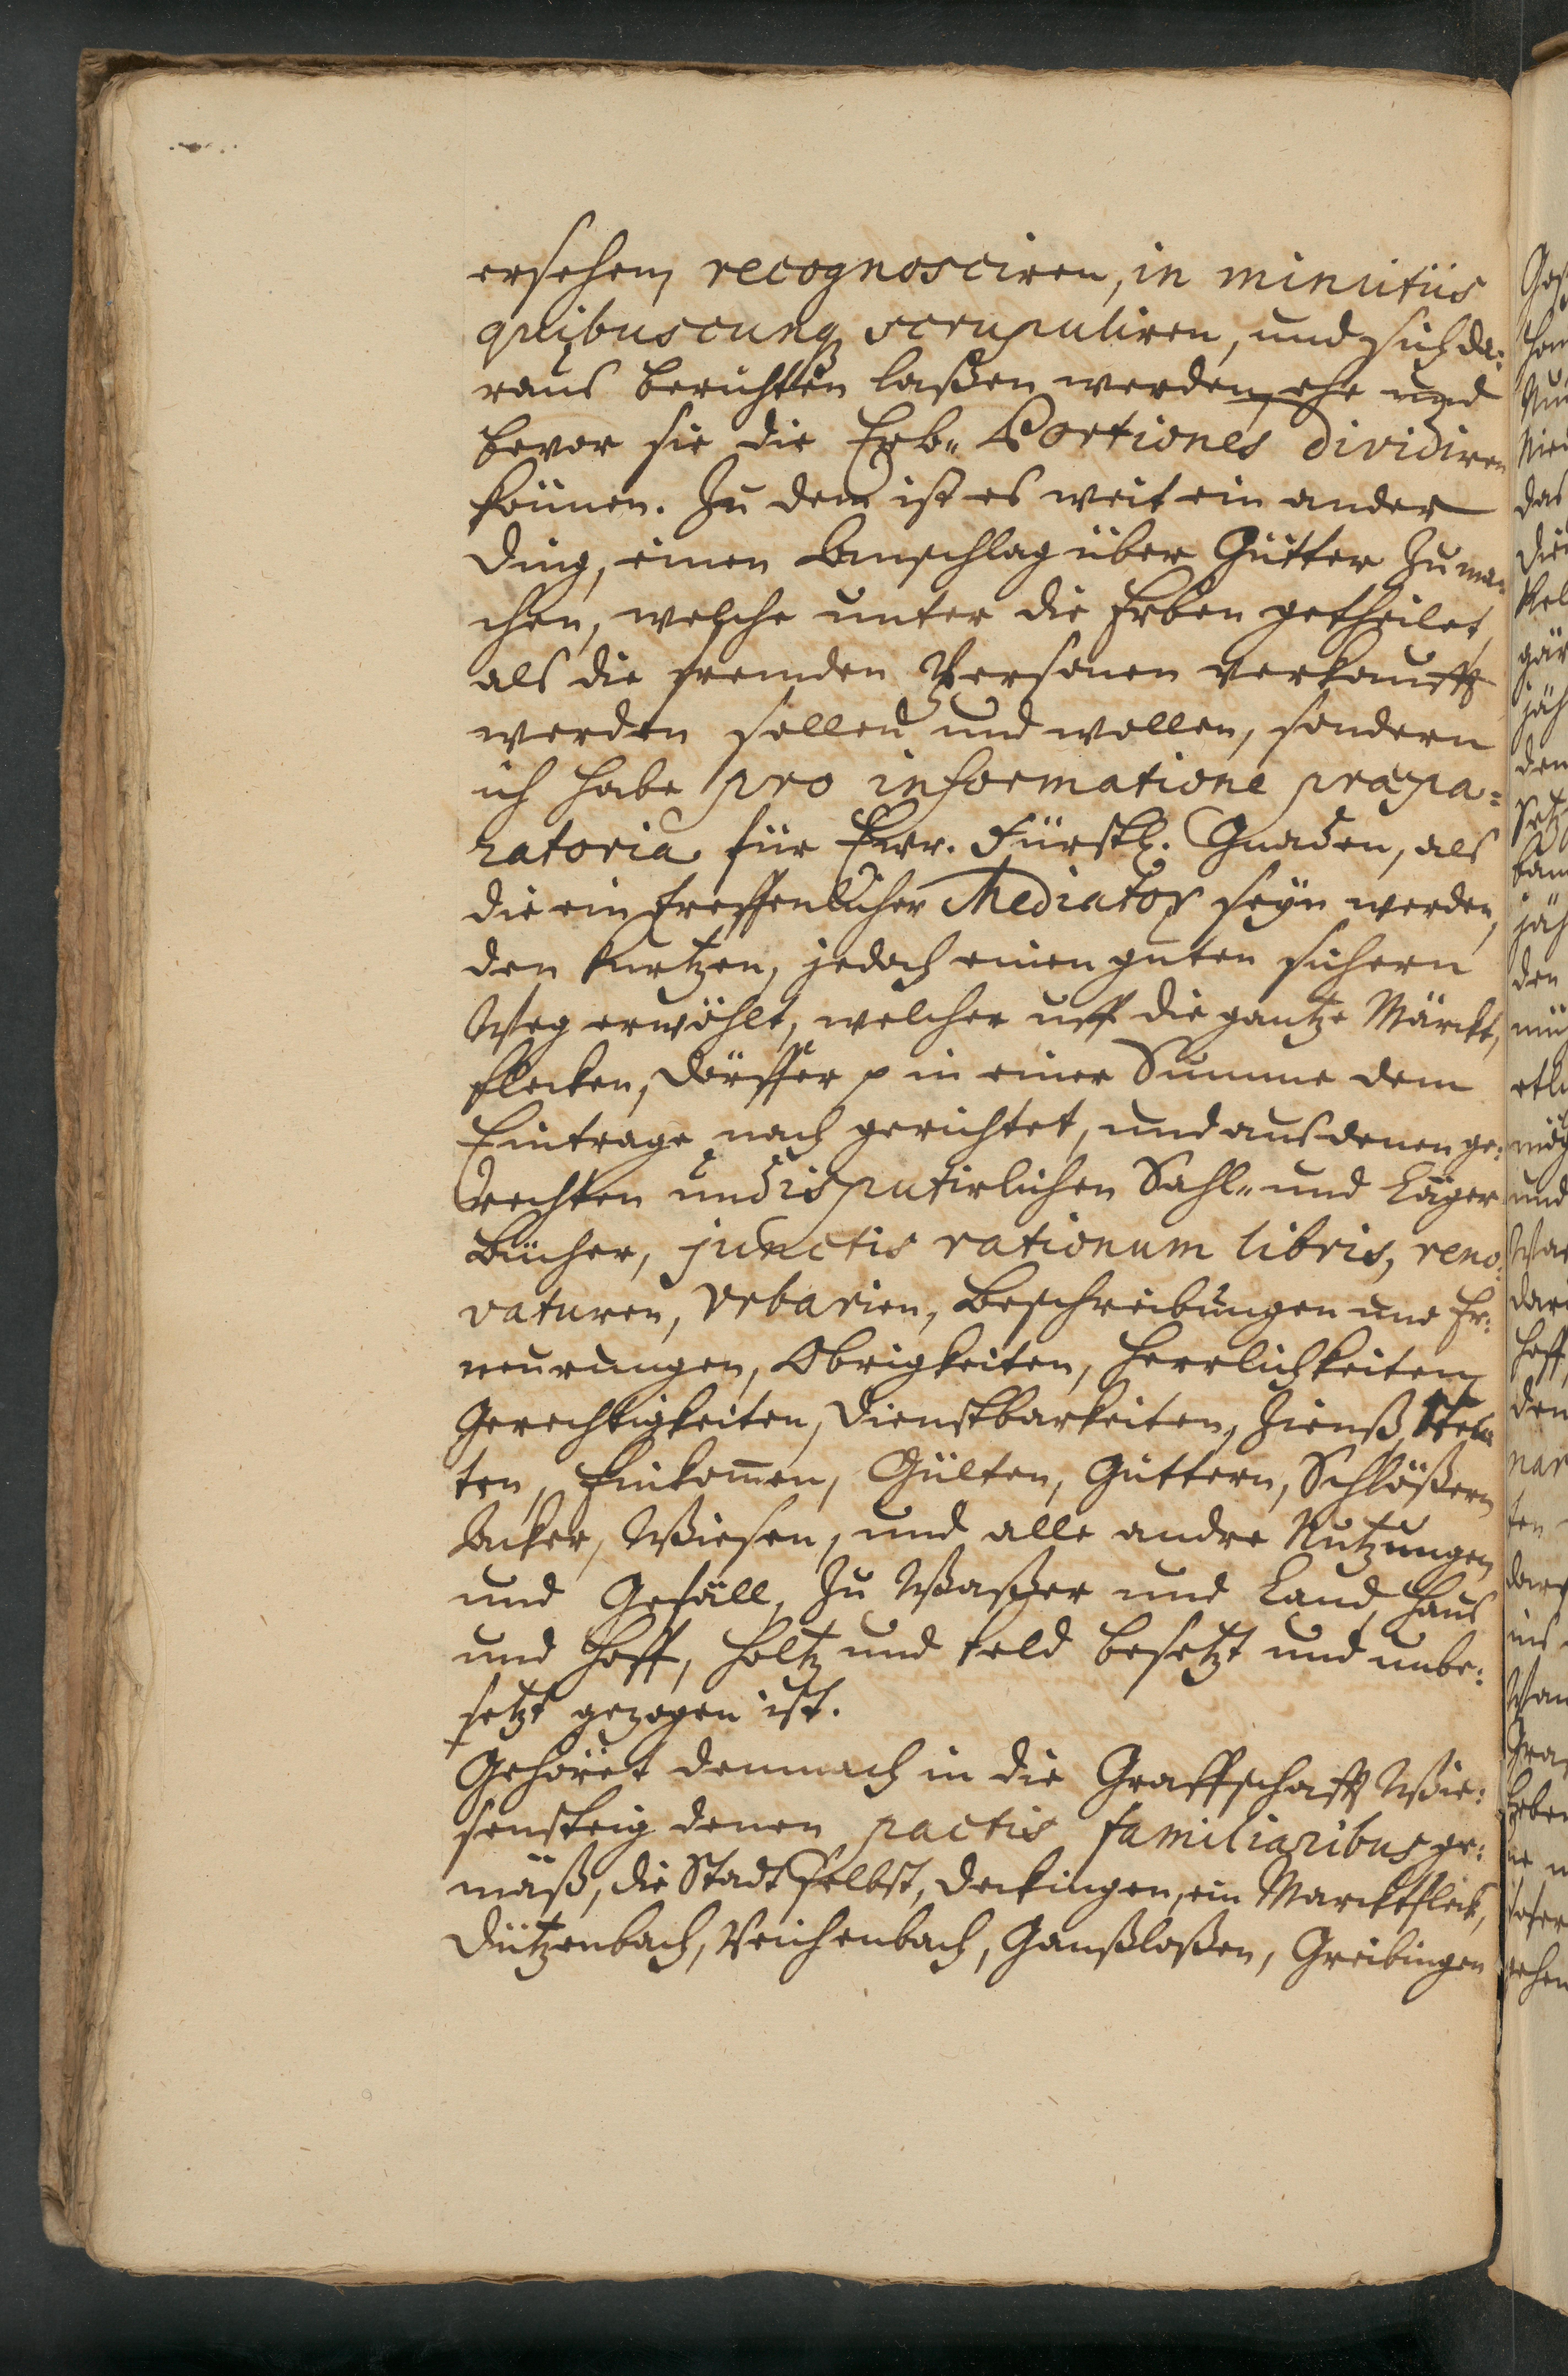 ersehen, recognosciren, in minutiis
quibuscunq scrupuliren, und sich da:
raus berichten laßen werden, ehe und
bevor sie die Erb„ Portiones dividiren
können. Zu dem ist es weit ein ander
Ding, einen Anschlag über Gütter zu ma„
chen, welche unter die Erben getheilet,
als die fremden Persohnen verkaufft
werden sollen und wollen, sondern
ich habe pro informatione præpa:
ratoria für Ewr. Fürstl. Gnaden, als
die ein treffenlicher Mediator seyn werden,
den kurtzen, jedoch einen guten sichern
Weg erwöhlt, welcher uff die gantze Märckt,
flecken, Dörffer p in einer Summe dem
Eintrage nach gerichtet, und aus denen ge:
rechten undisputirlichen Sahl„ und Läger
Bücher, junctis rationum libris, reno:
vaturen, Vrbarien, Beschreibungen und Er:
neurungen, Obrigkeiten, Herrlichkeiten,
Gerechtigkeiten, Dienstbarkeiten, Zienß,
ten, Einkom̅en, Gülten, Güttern, Schlößern
Acker, Wießen, und alle andre Nutzungen
und Gefäll, zu Waßer und Land, Hauß
und Hoff, Holtz und Feld besetzt und unbe:
setzt gezogen ist.
Gehöret demnach in die Graffschafft Wie:
sensteig denen pactis familiaribus ge:
mäß, die Stadt selbst, Deckingen, ein Marcktfleck,
Dützenbach, Reichenbach, Ganßloßen, Greibingen